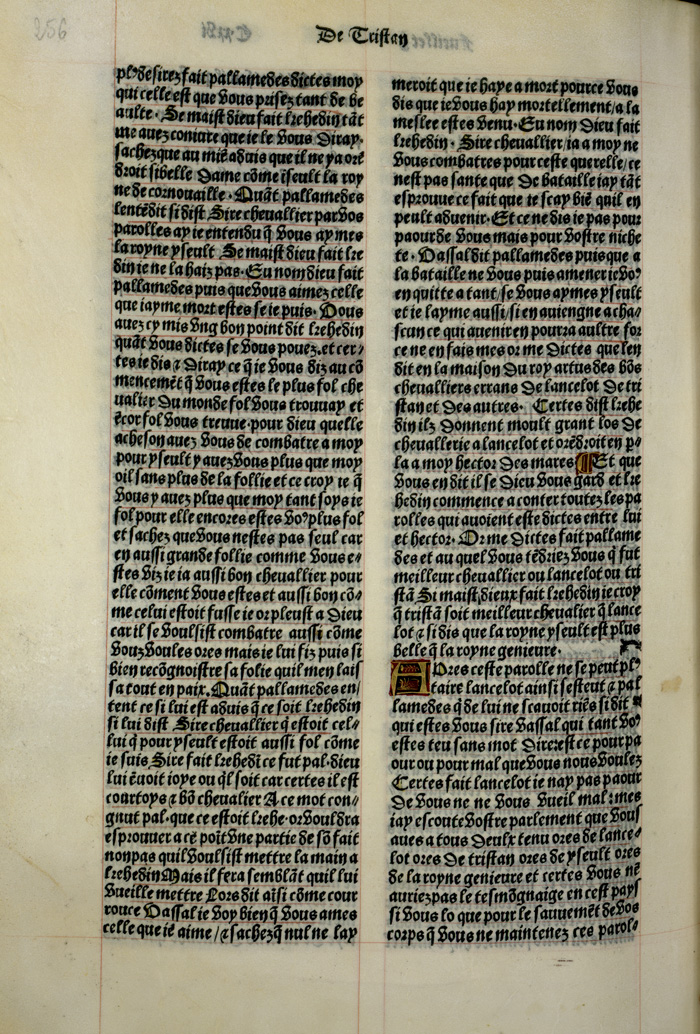 256
De Tristan
plꝰ desirez fait pallamedes dictes moy
qui celle est que vous prisez tant de be
aulte. Se maist dieu fait lrehedin tāt
me auez coniure que ie le vous diray.
sachez que au miē aduis que il ne ya orē
droit si belle dame cōme iseult la roy
ne de cornouaille. Quāt pallamedes
lentēdit si dist Sire cheuallier par vos
parolles ay ie entendu q̄ vous ay mes
la royne yseult Se maist dieu fait lre
din ie ne la haiz pas. En nom dieu fait
pallamedes puis que vous aimez celle
que iayme mort estes se ie puis. Vous
auez cy mis vng bon point dit lrehedin
quāt vous dictes se vous pouez. et cer⸗
tes ie dis ⁊ diray ce q̄ ie vous diz au cō
mencemēt q̄ vous estes le plus fol che
ualier du monde fol vous trouuay et
ēcor fol vous treuue. pour dieu quelle
acheson auez vous de combatre a moy
pour yseult y auez vous plus que moy
oil sans plus de la follie et ce croy ie q̄
vous y auez plus que moy tant soys ie
fol pour elle encores estes voꝰ plus fol
et sachez que vous nestes pas seul car
en aussi grande follie comme vous e⸗
stes viz ie ia aussi bon cheuallier pour
elle cōment vous estes et aussi bon cō⸗
me celui estoit fusse ie or pleust a dieu
car il se voulsist combatre aussi cōme
vouz voules ores mais ie lui fiz puis si
bien recōgnoistre sa folie quil men lais
sa tout en paix. Quāt pallamedes en/
tent ce si lui est aduis q̄ ce soit lrehedin
si lui dist Sire cheuallier q̄ estoit cel⸗
lui q̄ pour yseult estoit aussi fol cōme
ie suis Sire fait lrehedī ce fut pal. dieu
lui ēuoit ioye ou q̄l soit car certes il est
courtoys ⁊ bō cheualier A ce mot con⸗
gnut pal. que ce estoit lrehe. or vouldra
esprouuer a cē poīt vne partie de sō fait
non pas quil voulsist mettre la main a
lrehedin Mais il fera semblāt quil lui
vueille mettre Lors dit aīsi cōme cour
rouce Vassal ie voy bien q̄ vous ames
celle que ie aime / ⁊ sachez q̄ nul ne lay
meroit que ie haye a mort pource vous
dis que ie vous hay mortellement / a la
meslee estes venu. En nom dieu fait
lrehedin. Sire cheuallier / ia a moy ne
vous combatres pour ceste querelle / ce
nest pas sante que de bataille iay tāt
esprouue ce fait que ie scay biē quil en
peult aduenir. Et ce ne dis ie pas pour
paour de vous mais pour vostre niche
te. Vassal dit pallamedes puis que a
la bataille ne vous puis amener ie voꝰ
en quitte a tant / se vous aymes yseult
et ie layme aussi / si en auiengne a cha⸗
scun ce qui auenir en pourra aultre for
ce ne en fais mes or me dictes que len
dit en la maison du roy artus des bōs
cheualliers errans de lancelot de tri
stan et des autres. Certes dist lrehe
din ilz donnent moult grant los de
cheuallerie a lancelot et orēdroit en p⸗
la a moy hector des mares Et que
vous en dit il se dieu vous gard et lre
hedin commence a conter toutez les pa
rolles qui auoient este dictes entre lui
et hector. Or me dictes fait pallame
des et au quel vous tēdriez vous q̄ fut
meilleur cheuallier ou lancelot ou tri
stā Si maist dieux fait lrehedin ie croy
q̄ tristā soit meilleur cheualier q̄ lance
lot ⁊ si dis que la royne yseult est plus
belle q̄ la royne genieure.
Apres ceste parolle ne se peut plꝰ
taire lancelot ainsi sesteut ⁊ pal
lamedes q̄ de lui ne scauoit riēs si dit
qui estes vous sire vassal qui tant voꝰ
estes teu sans mot dire: est ce pour pa
our ou pour mal que vous nous voulez
Certes fait lancelot ie nay pas paour
de vous ne ne vous vueil mal: mes
iay escoute vostre parlement que vous
aues a tous deulx tenu ores de lance⸗
lot ores de tristan ores de yseult ores
de la royne genieure et certes vous nē
auriez pas le tesmōgnaige en cest pays
si vous lo que pour le sauuemēt de vos
corps q̄ vous ne maintenez ces parol⸗